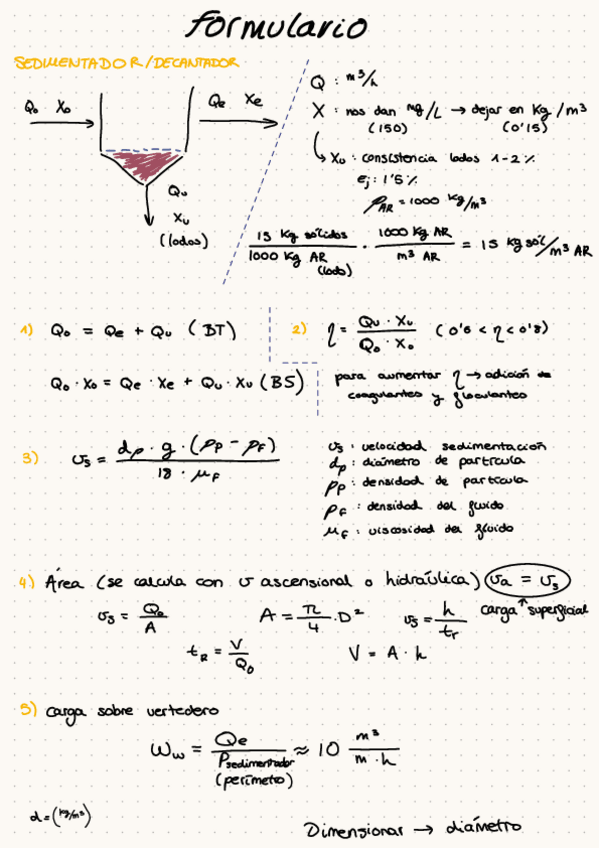 formulario
SEDIMENTADOR/DECANTADOR
Q₀ X₀
Qe Xe
Qu
Xu
(lodos)
Q : m³/h
X : nos dan mg/L → dejar en Kg/m³
(150) (0'15)
↳ Xu : consistencia lodos 1-2%
ej: 1'5%
ρAR = 1000 kg/m³
15 Kg sólidos / 1000 Kg AR (lodo) · 1000 Kg AR / m³ AR = 15 kg sól/m³ AR
1) Q₀ = Qe + Qu (BT)
Q₀ · X₀ = Qe · Xe + Qu · Xu (BS)
2) η = Qu · Xu / Q₀ · X₀ (0'6 < η < 0'8)
para aumentar η → adición de
coagulantes y floculantes
3) vs = dp · g · (ρp - ρF) / 18 · μF
vs : velocidad sedimentación
dp : diámetro de partícula
ρp : densidad de partícula
ρF : densidad del fluido
μF : viscosidad del fluido
4) Área (se calcula con v ascensional o hidráulica) va = vs
vs = Qe / A A = π/4 · D² vs = h / tr carga superficial
tR = V / Q₀ V = A · h
5) carga sobre vertedero
Ww = Qe / Psedimentador ≈ 10 m³ / m · h
(perímetro)
d = (kg/m³)
Dimensionar → diámetro